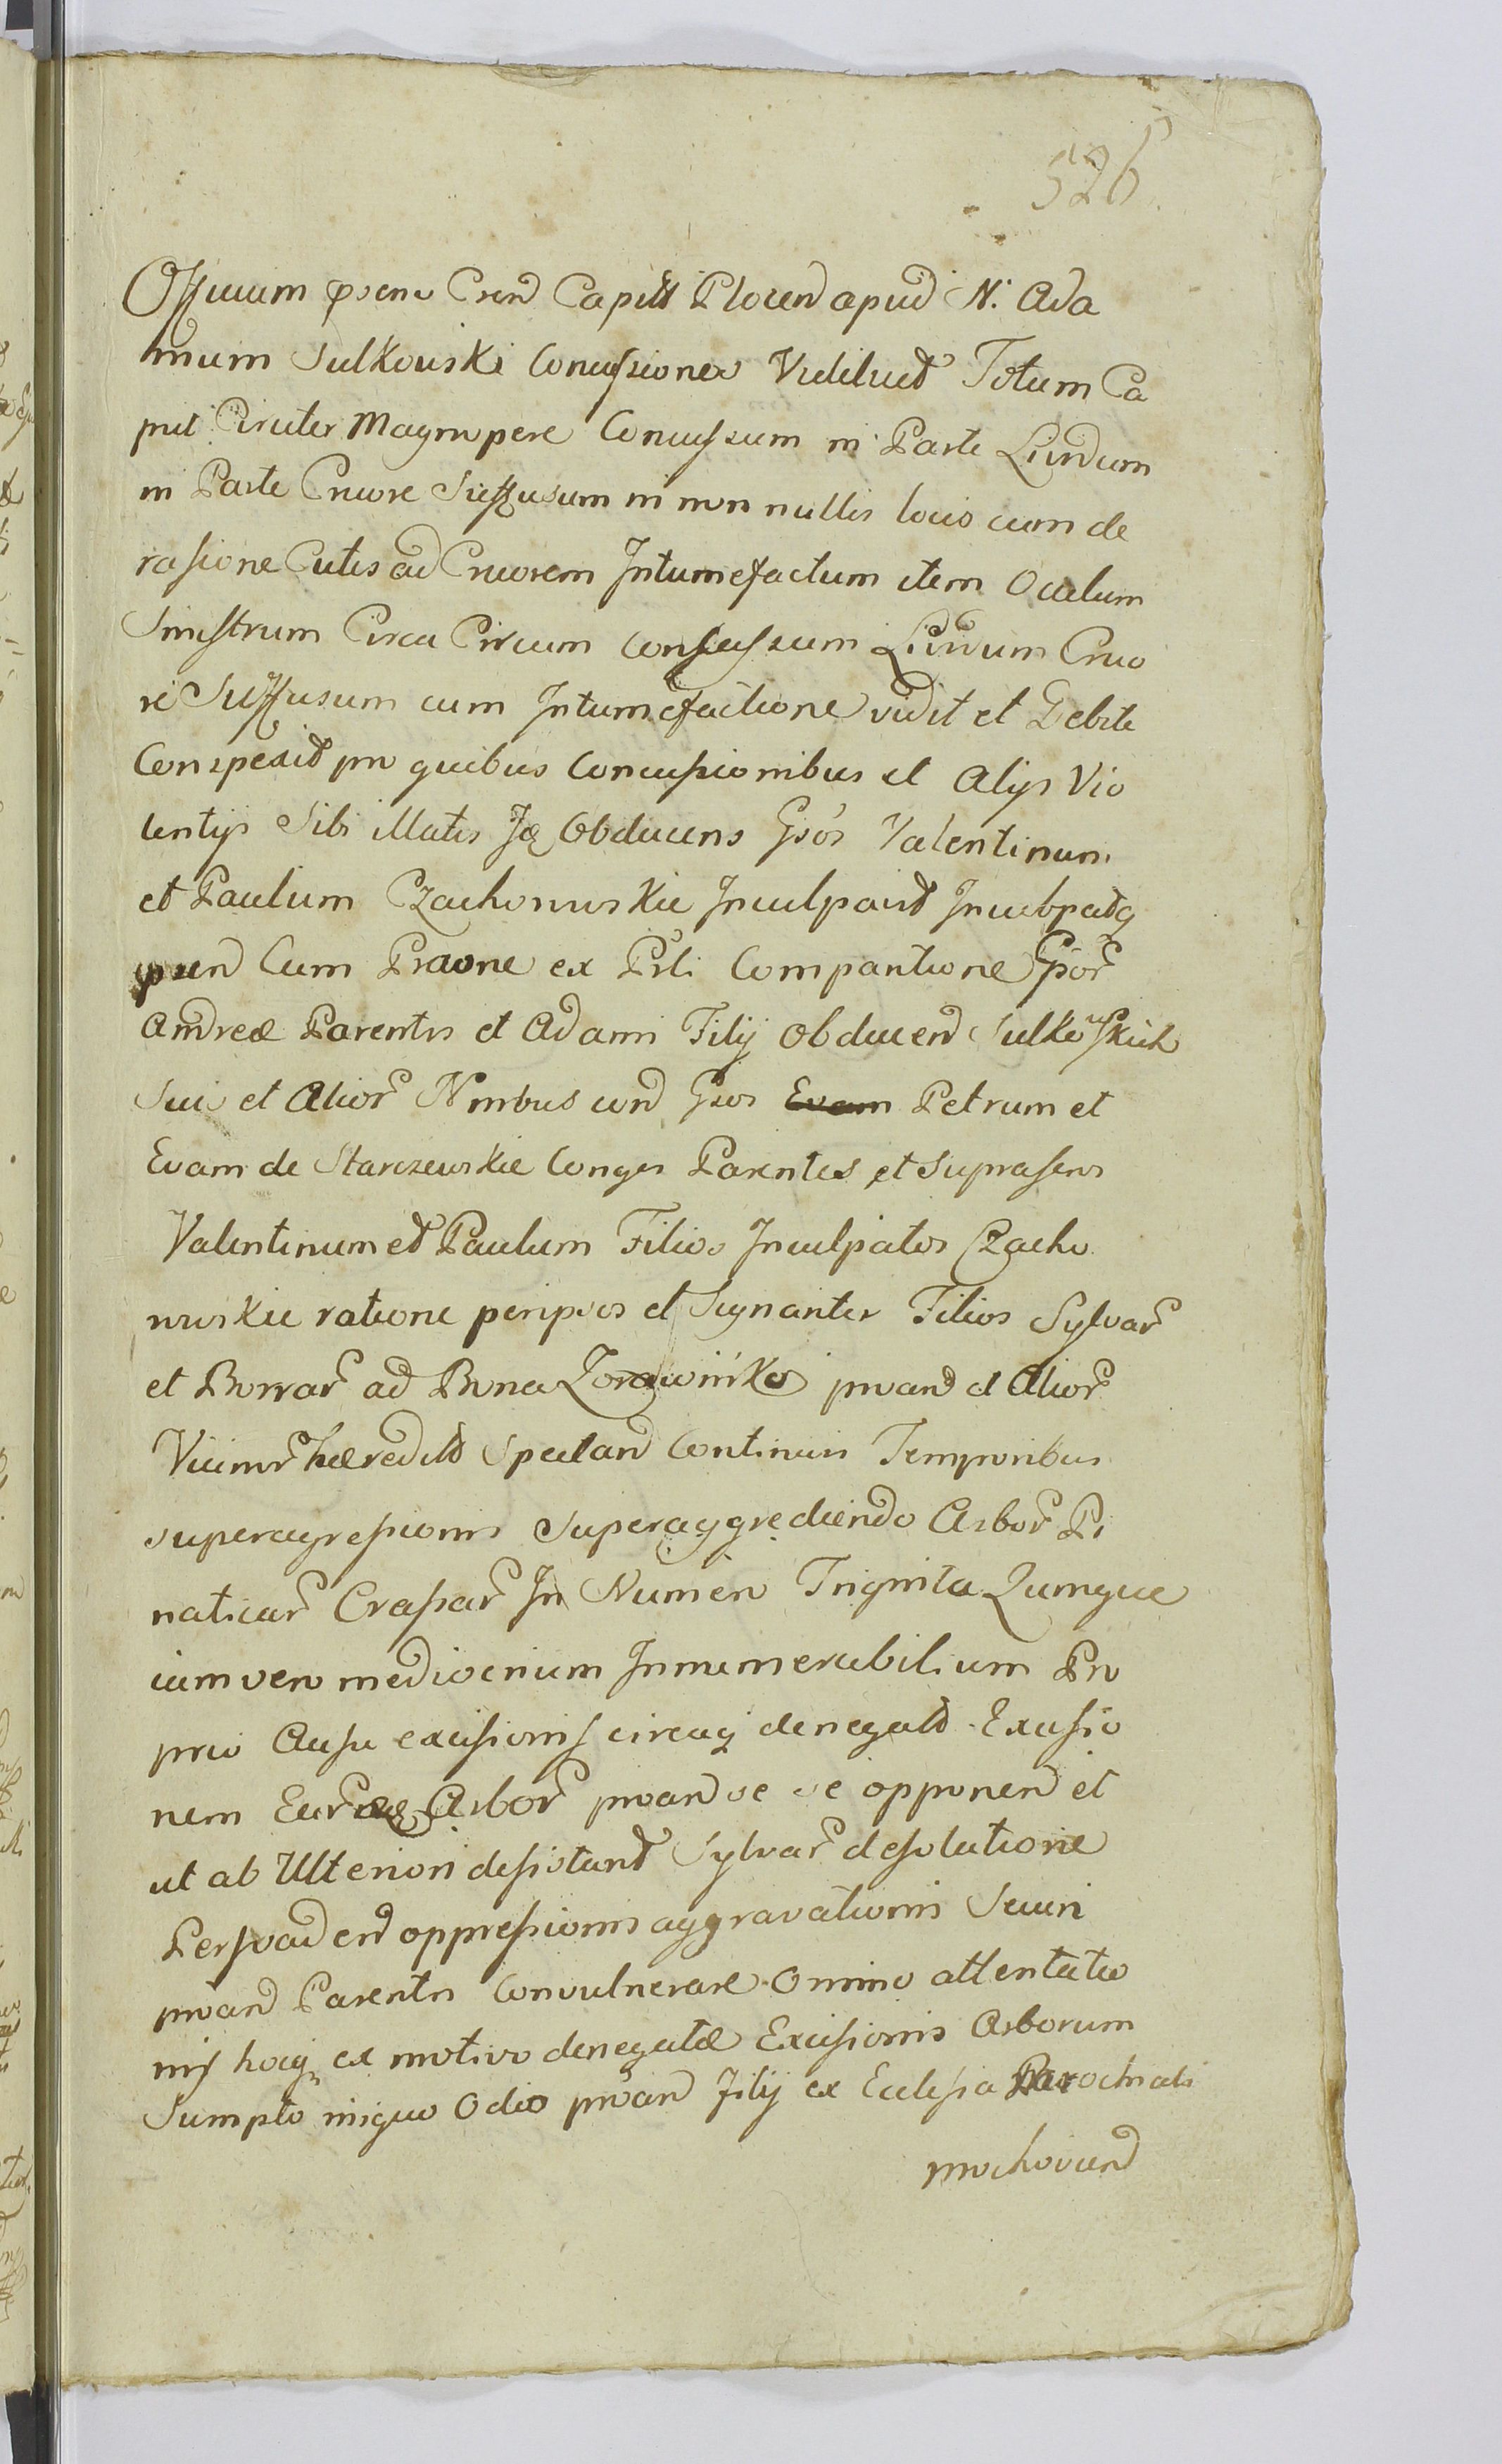 526
Officium præns Cren̄d Capitt Plocen̄d apud N: Ada
mum Sulkowski Concussiones Videlicet Totum Ca
put Circiter Magnopere Concussum in Parte Lividum
in Parte Cruore Suffusum in non nullis locis cum de
rasione Cutis ad Cruorem Intumefactum item Oculum
Sinistrum Circa Circum Concussum Lividum Cruo
re Suffusum cum Intumefactione vidit et Debite
Conspexit pro quibus Concussionibus et Alijs Vio
lentijs Sibi illatis Idq Obducens Gsos Valentinum
et Paulum Czachorowskie Inculpavit
Cum Praone ex Psti Comparitione Gsor
Andreæ Parentis et Adami Filij Obducen̄ Sulkowskich
Suis et Alior Nnibus con̄d Gsos Evam Petrum et
Evam de Starczewskie Conges Parentes et Suprascros
Valentinum et Paulum Filios Inculpatos Czacho
rowskie ratione per ipsos et Signanter Filios Sylvar
et Borrar ad Bona Zorawinko proan̄d et Alior
Vicinor hæredit Spectan̄d Continuis Temporibus
superagressionis Superaggrediendo Arbor Pi
naticar Crassar In Numero Triginta Quinque
iam vero mediocrium Innumerabilium Pro
prio Ausu excisionis eireaq denegat Excisio
nem Earumq Arbor proan̄d se se opponen̄d et
ut ab Ulteriori desistant Sylvar desolatione
Persvaden̄d oppressionis aggravationis Securi
proan̄d Parentis Convulnerare Omnino attentatio
nis hocq ex motivo denegatæ Excisionis Arborum
Sumpto iniquo Odio proan̄d Filij ex Ecclesia Parochiali
prochovien̄d